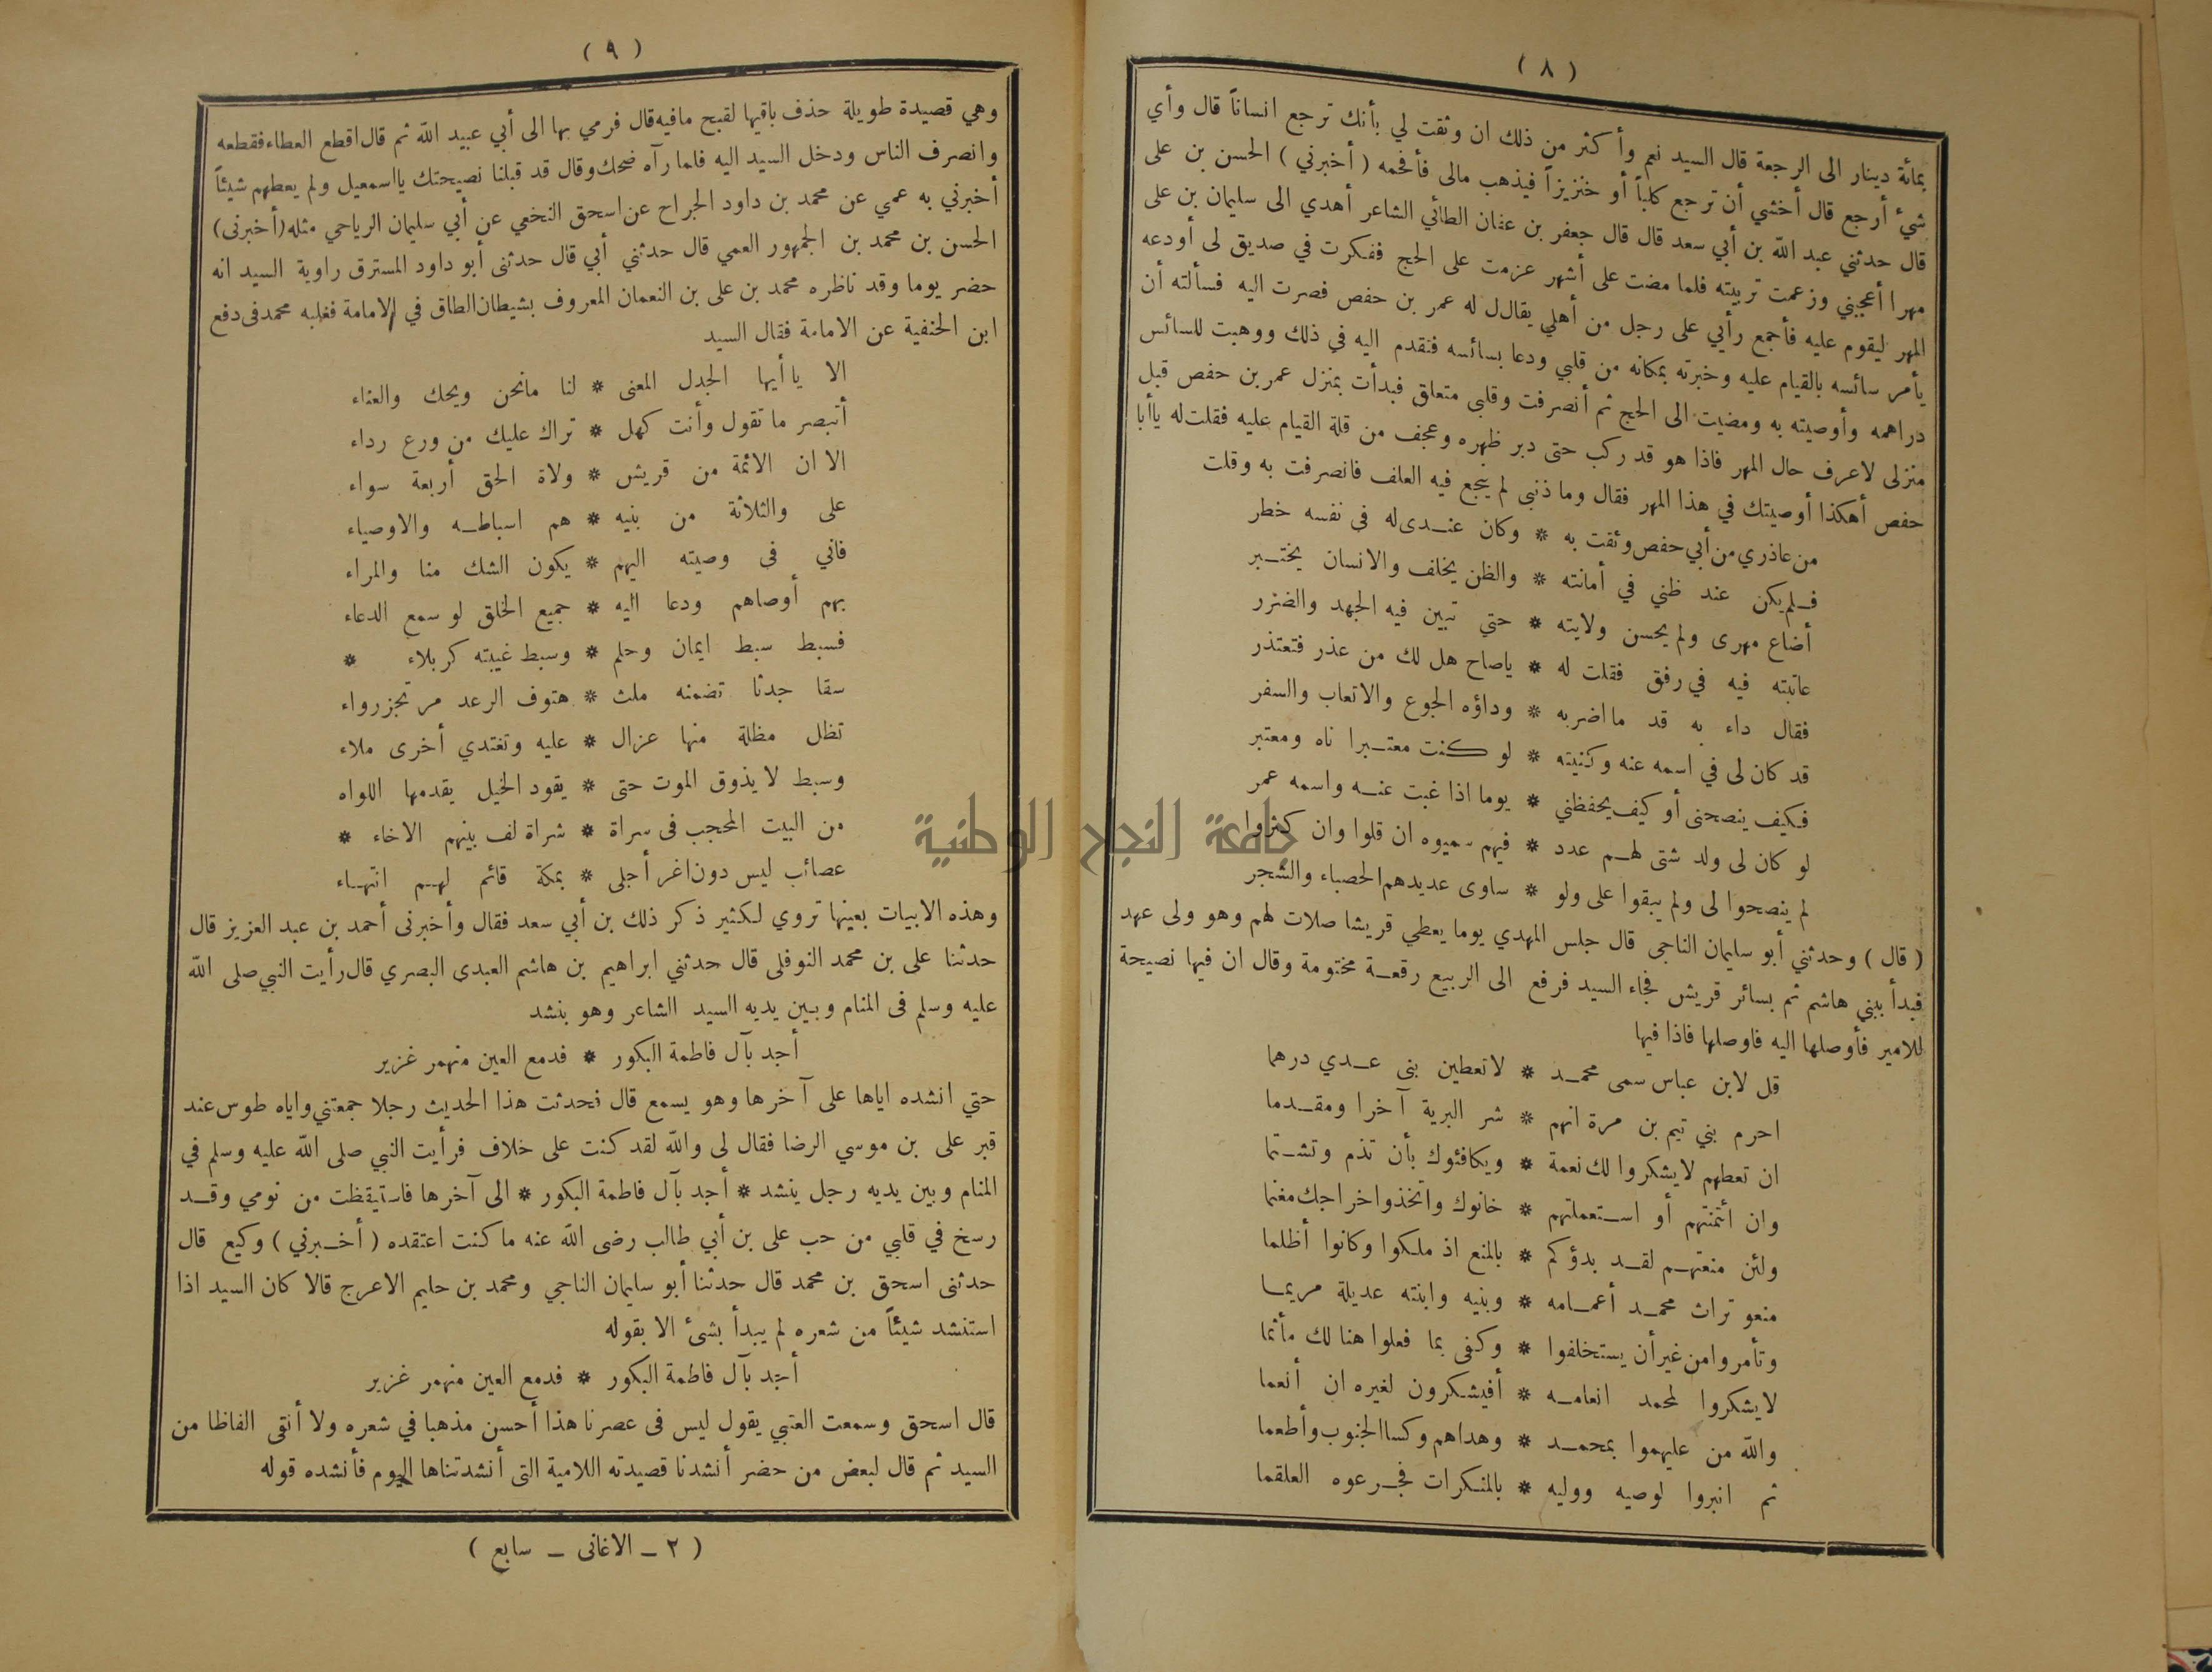 ( ٨ )
بمائة دينار الى الرجعة قال السيد نعم وأكثر من ذلك ان وثقت لي بأنك ترجع انساناً قال وأي
شئ أرجع قال أخشي أن ترجع كلباً أو خنزيراً فيذهب مالى فأفحمه ( أخبرني ) الحسن بن على
قال حدثني عبد الله بن أبي سعد قال قال جعفر بن عفان الطائي الشاعر أهدي الى سليمان بن على
مهرا أعجبني وزعمت تربيته فلما مضت على أشهر عزمت على الحج ففكرت في صديق لى أودعه
المهر ليقوم عليه فأجمع رأيي على رجل من أهلي يقال له عمر بن حفص فصرت اليه فسألته أن
يأمر سائسه بالقيام عليه وخبرته بمكانه من قلبي ودعا بسائسه فتقدم اليه في ذلك ووهبت للسائس
دراهمه وأوصيته به ومضيت الى الحج ثم أنصرفت وقلبي متعلق فبدأت بمنزل عمر بن حفص قبل
منزلى لاعرف حال المهر فاذا هو قد ركب حتى دبر ظهره وعجف من قلة القيام عليه فقلت له ياأبا
حفص أهكذا أوصيتك في هذا المهر فقال وما ذنبى لم ينجع فيه العلف فانصرفت به وقلت
من عاذري من أبي حفص وثقت به * وكان عندى له فى نفسه خطر
فلم يكن عند ظني في أمانته * والظن يخلف والانسان يختبر
أضاع مهرى ولم يحسن ولايته * حتي تبين فيه الجهد والضرر
عاتبته فيه في رفق فقلت له * ياصاح هل لك من عذر فتعتذر
فقال داء به قد ما اضربه * وداؤه الجوع والاتعاب والسفر
قد كان لى في اسمه عنه وكنيته * لو كنت معتبرا ناه ومعتبر
فكيف ينصحنى أو كيف يحفظني * يوما اذا غبت عنه واسمه عمر
لو كان لى ولد شتى لهم عدد * فيهم سميوه ان قلوا وان كثروا
لم ينصحوا لى ولم يبقوا على ولو * ساوى عديدهم الحصباء والشجر
( قال ) وحدثني أبو سليمان الناجى قال جلس المهدي يوما يعطي قريشا صلات لهم وهو ولى عهد
فبدأ ببني هاشم ثم بسائر قريش فجاء السيد فرفع الى الربيع رقعة مختومة وقال ان فيها نصيحة
للامير فأوصلها اليه فاوصلها فاذا فيها
قل لابن عباس سمى محمد * لاتعطين بنى عدي درهما
احرم بني تيم بن مرة انهم * شر البرية آخرا ومقدما
ان تعطهم لايشكروا لك نعمة * ويكافئوك بأن تذم وتشتما
وان ائتمنتهم أو استعملتهم * خانوك واتخذوا خراجك مغنما
ولئن منعتهم لقد بدؤكم * بالمنع اذ ملكوا وكانوا أظلما
منعو تراث محمد أعمامه * وبنيه وابنته عديلة مريما
وتأمروا من غير أن يستخلفوا * وكفى بما فعلوا هنا لك مأثما
لايشكروا لمحمد انعامه * أفيشكرون لغيره ان أنعما
والله من عليهموا بمحمد * وهداهم وكسا الجنوب وأطعما
ثم انبروا لوصيه ووليه * بالمنكرات فجرعوه العلقما
( ٩ )
وهي قصيدة طويلة حذف باقيها لقبح مافيه قال فرمي بها الى أبي عبيد الله ثم قال اقطع العطاء فقطعه
وانصرف الناس ودخل السيد اليه فلما رآه ضحك وقال قد قبلنا نصيحتك يااسمعيل ولم يعطهم شيئاً
أخبرني به عمي عن محمد بن داود الجراح عن اسحق النخعي عن أبي سليمان الرياحي مثله (أخبرنى)
الحسن بن محمد بن الجمهور العمي قال حدثني أبي قال حدثنى أبو داود المسترق راوية السيد انه
حضر يوما وقد ناظره محمد بن على بن النعمان المعروف بشيطان الطاق في الامامة فغلبه محمد فى دفع
ابن الحنفية عن الامامة فقال السيد
الا ياأيها الجدل المعنى * لنا مانحن ويحك والعناء
أتبصر ما تقول وأنت كهل * تراك عليك من ورع رداء
الا ان الائمة من قريش * ولاة الحق أربعة سواء
على والثلاثة من بنيه * هم اسباطه والاوصياء
فاني فى وصيته اليهم * يكون الشك منا والمراء
بهم أوصاهم ودعا اليه * جميع الخلق لو سمع الدعاء
فسبط سبط ايمان وحلم * وسبط غيبته كربلاء *
سقا جدثا تضمنه ملث * هتوف الرعد مرتجز رواء
تظل مظلة منها عزال * عليه وتغتدي أخرى ملاء
وسبط لا يذوق الموت حتى * يقود الخيل يقدمها اللواه
من البيت المحجب فى سراة * شراة لف بينهم الاخاء *
عصائب ليس دون اغر أجلى * بمكة قائم لهم انتهاء
وهذه الابيات بعينها تروي لكثير ذكر ذلك بن أبي سعد فقال وأخبرنى أحمد بن عبد العزيز قال
حدثنا على بن محمد النوفلى قال حدثني ابراهيم بن هاشم العبدى البصري قال رأيت النبي صلى الله
عليه وسلم فى المنام وبين يديه السيد الشاعر وهو ينشد
أجد بآل فاطمة البكور * فدمع العين منهمر غزير
حتي انشده اياها على آخرها وهو يسمع قال فحدثت هذا الحديث رجلا جمعتني واياه طوس عند
قبر على بن موسي الرضا فقال لى والله لقد كنت على خلاف فرأيت النبي صلى الله عليه وسلم في
المنام وبين يديه رجل ينشد * أجد بآل فاطمة البكور * الى آخرها فاستيقظت من نومي وقد
رسخ في قلبي من حب على بن أبي طالب رضى الله عنه ما كنت اعتقده ( أخبرني ) وكيع قال
حدثنى اسحق بن محمد قال حدثنا أبو سليمان الناجي ومحمد بن حليم الاعرج قالا كان السيد اذا
استنشد شيئاً من شعره لم يبدأ بشئ الا بقوله
أجد بآل فاطمة البكور * فدمع العين منهمر غزير
قال اسحق وسمعت العتبي يقول ليس فى عصرنا هذا أحسن مذهبا في شعره ولا أنقى الفاظا من
السيد ثم قال لبعض من حضر أنشدنا قصيدته اللامية التى أنشدتناها اليوم فأنشده قوله
( ٢ ــ الاغانى ــ سابع )
جامعة النجاح الوطنية